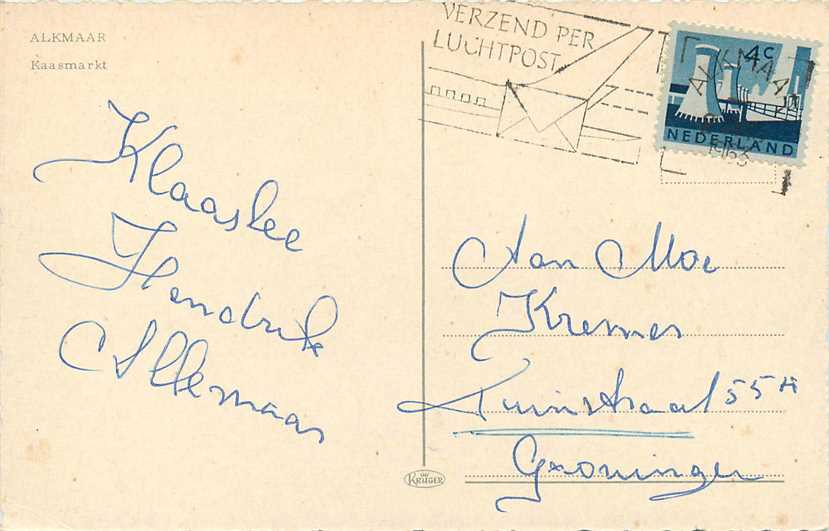 ALKMAAR
Kaasmarkt
Klaaslee
Hendrik
Allemaas
VERZEND PER
LUCHTPOST
4c
ALKMAAR
NEDERLAND
1963
Aan Moe
Kremer
Tuinstraat 55A
Groningen
KRÜGER